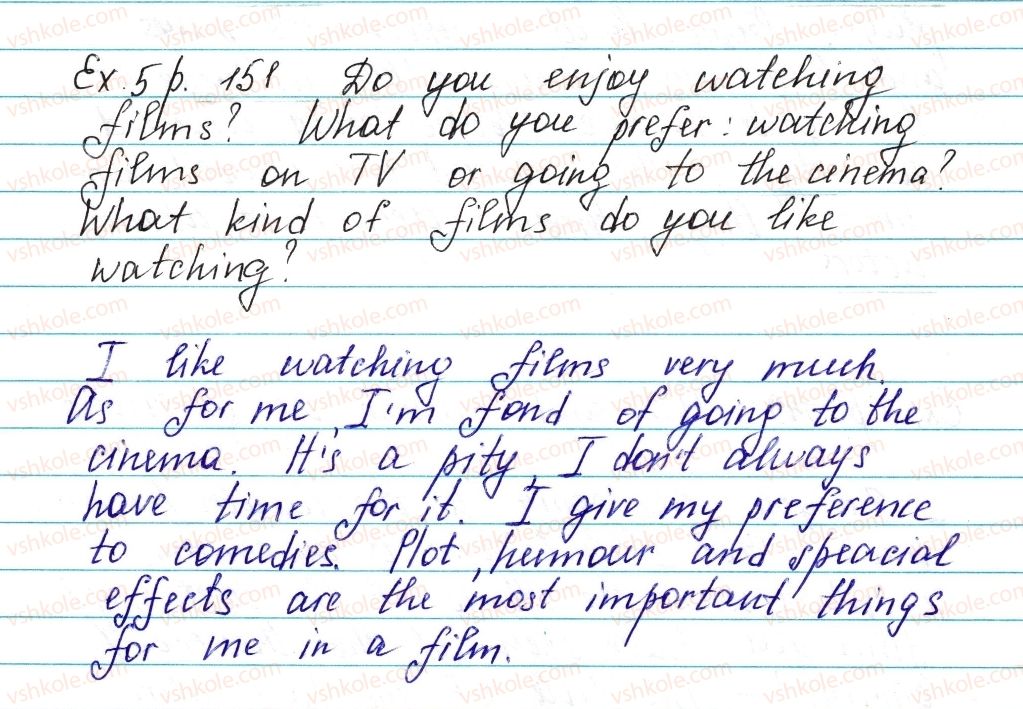 Ex. 5 p. 151 Do you enjoy watching
films? What do you prefer: watching
films on TV or going to the cinema?
What kind of films do you like
watching?
I like watching films very much.
As for me, I'm fond of going to the
cinema. It's a pity, I don't always
have time for it. I give my preference
to comedies. Plot, humour and speacial
effects are the most important things
for me in a film.
vshkole.com